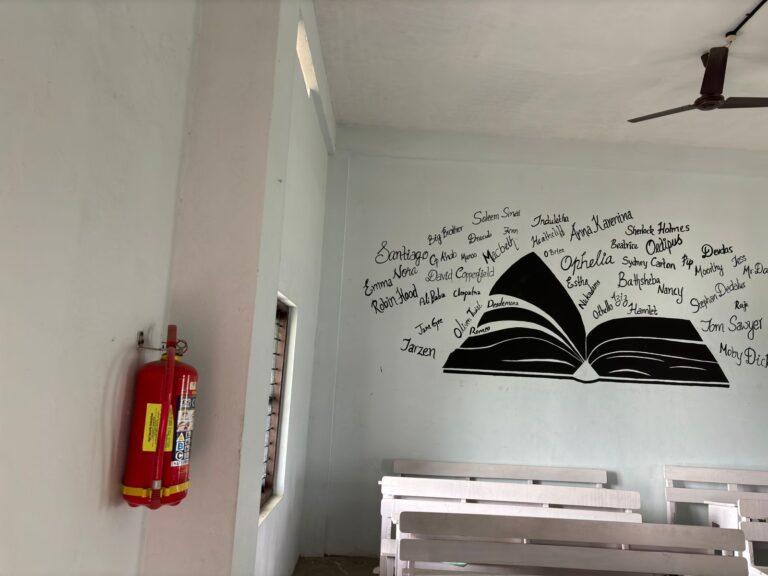 Saleem Sinai
Indulekha
Anna Karenina
Big Brother
Dracula
Finn
Heathcliff
Sherlock Holmes
Santiago
Macbeth
O'Brien
Beatrice
Oedipus
Devdas
Cap Kindo
Marco
Ophelia
Sydney Carton
Pip
Moorthy
Jess
Emma
Nora
David Copperfield
Estha
Bathsheba
Robin Hood
Ali Baba
Cleopatra
Nancy
Stephen Dedalus
Desdemona
Othello
Hamlet
Raju
Jane Eyre
Romeo
Tom Sawyer
Tarzen
Moby Dick
ABC